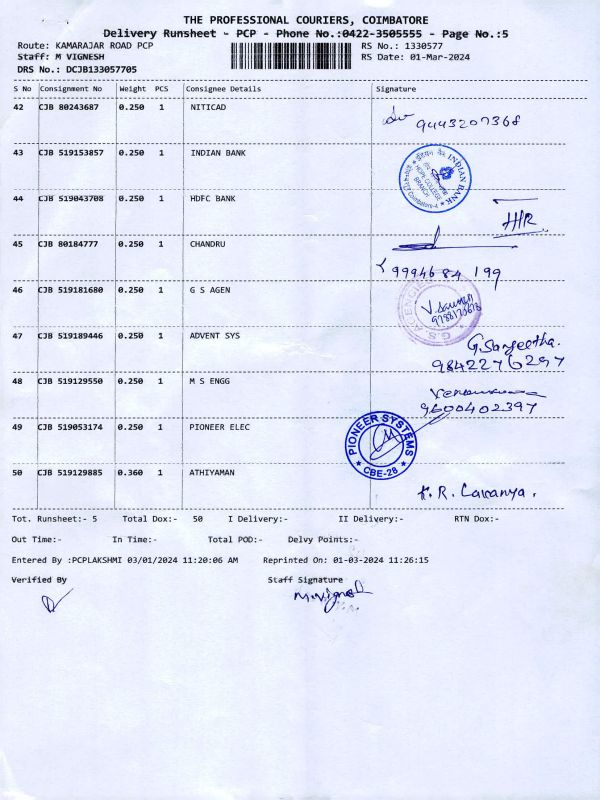 THE PROFESSIONAL COURIERS, COIMBATORE
Delivery Runsheet - PCP - Phone No.:0422-3505555 - Page No.:5
Route: KAMARAJAR ROAD PCP RS No.: 1330577
Staff: M VIGNESH RS Date: 01-Mar-2024
DRS No.: DCJB133057705
S No Consignment No Weight PCS Consignee Details Signature
42 CJB 80243687 0.250 1 NITICAD
9443207368
43 CJB 519153857 0.250 1 INDIAN BANK
INDIAN BANK
HOPE COLLEGE
BRANCH
Coimbatore-4
44 CJB 519043708 0.250 1 HDFC BANK
45 CJB 80184777 0.250 1 CHANDRU
99946 84 199
46 CJB 519181680 0.250 1 G S AGEN
G.S. AGENCIES
47 CJB 519189446 0.250 1 ADVENT SYS
G. Sangeetha.
9842276297
48 CJB 519129550 0.250 1 M S ENGG
9600402397
49 CJB 519053174 0.250 1 PIONEER ELEC
PIONEER SYSTEMS
CBE-28
50 CJB 519129885 0.360 1 ATHIYAMAN
K. R. Lavanya.
Tot. Runsheet:- 5 Total Dox:- 50 I Delivery:- II Delivery:- RTN Dox:-
Out Time:- In Time:- Total POD:- Delvy Points:-
Entered By :PCPLAKSHMI 03/01/2024 11:20:06 AM Reprinted On: 01-03-2024 11:26:15
Verified By Staff Signature
M.Vignesh